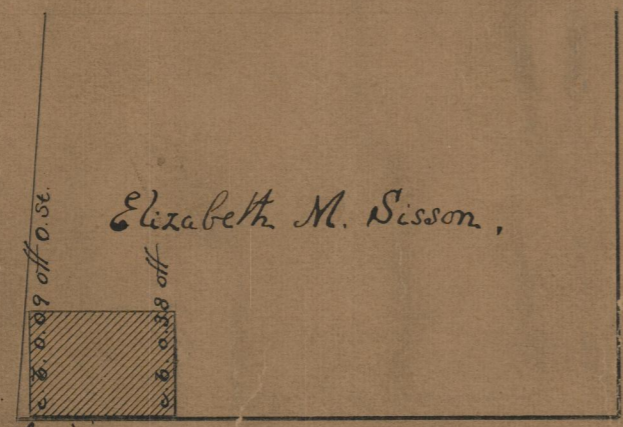 Elizabeth M. Sisson.
0.09 off O. St.
0.38 off